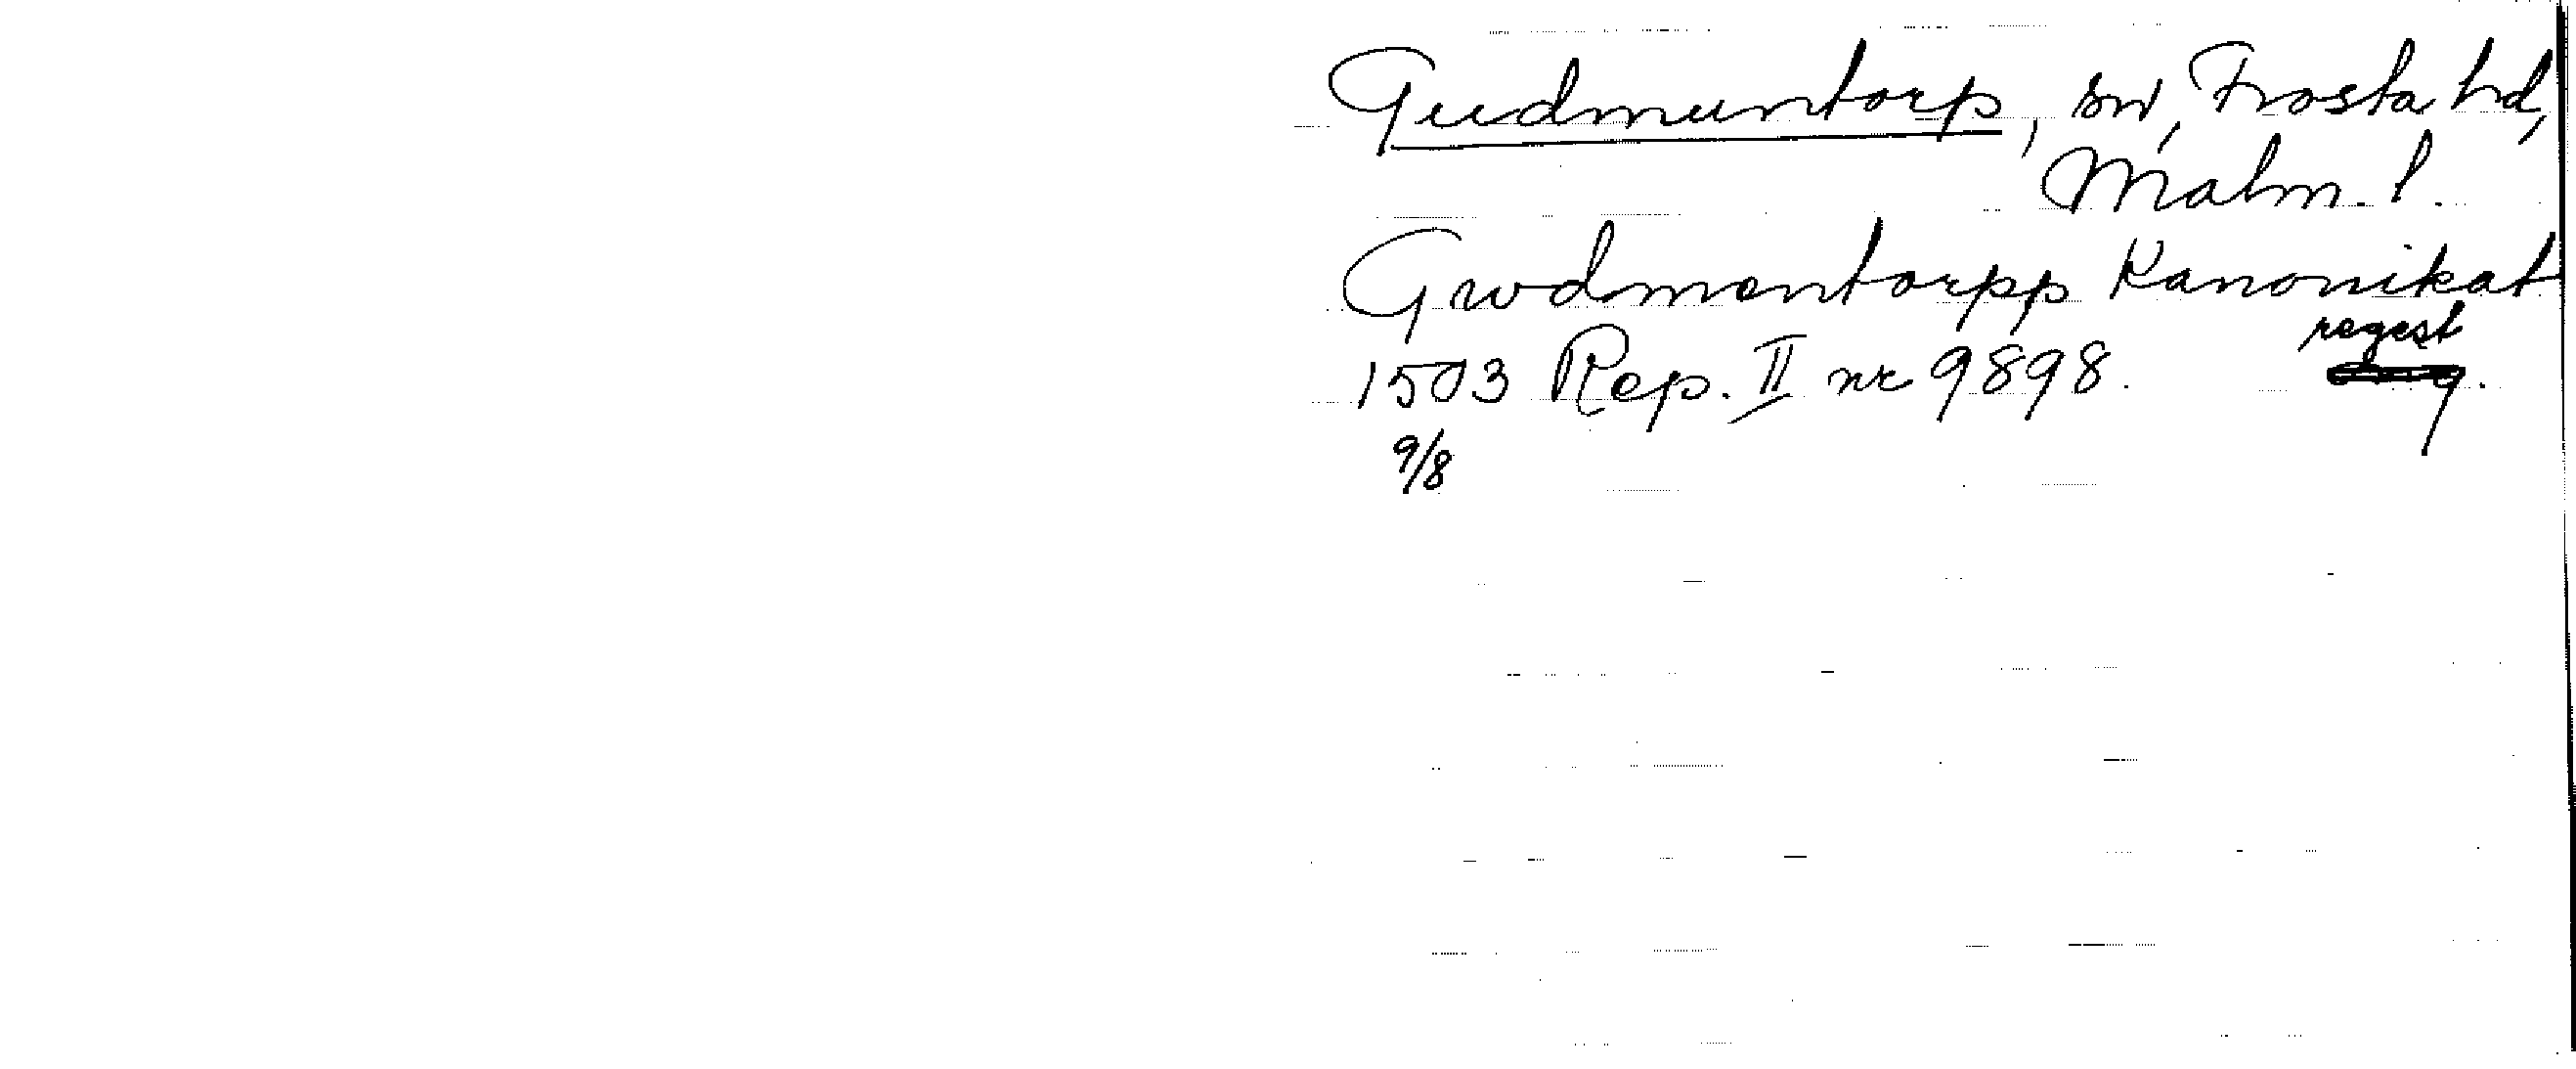 Gudmuntorp, sn, Frosta hd,
Malm. l.
Gwdmentorpp Kanonikat
regest
1503 Rep. II nr 9898.
9/8